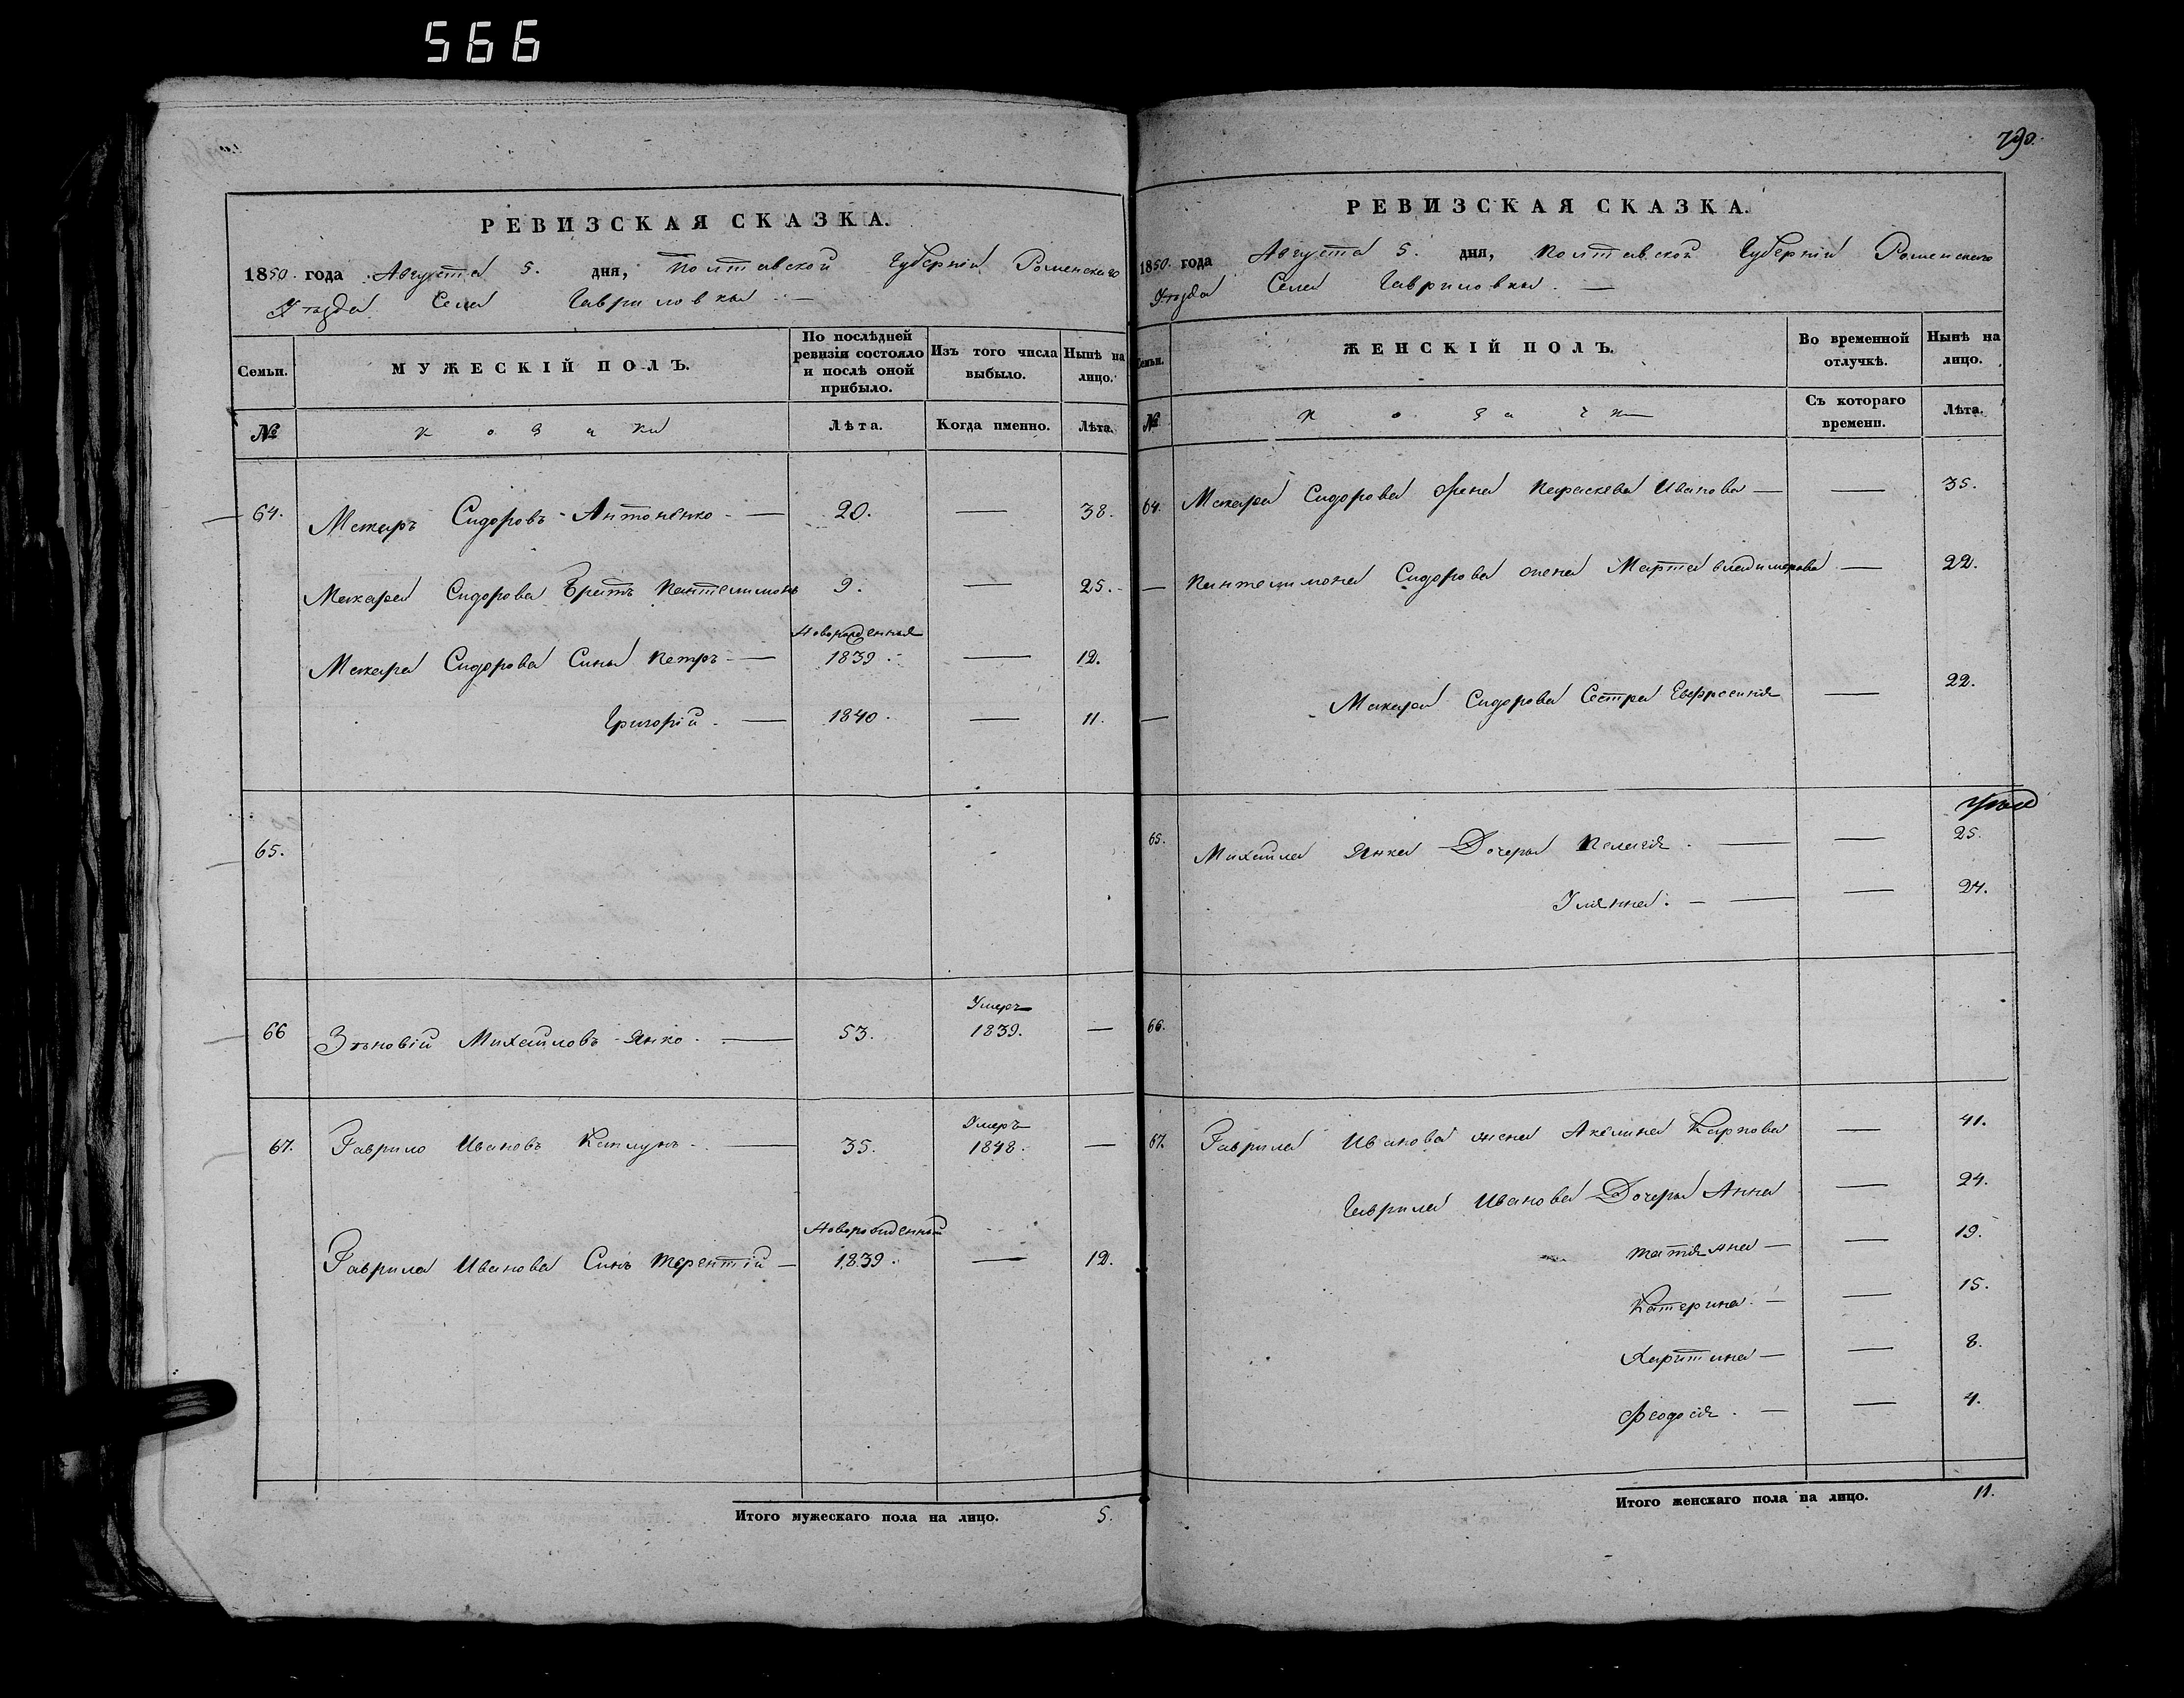 566
РЕВИЗСКАЯ СКАЗКА.
1850. года Августа 5. дня, Полтавской Губерніи Роменскаго
Уѣзда Села Гавриловки. —
Семьи.
МУЖЕСКІЙ ПОЛЪ.
По послѣдней ревизіи состояло и послѣ оной прибыло.
Изъ того числа выбыло.
Нынѣ на лицо.
№
козаки
Лѣта.
Когда именно.
Лѣта.
64. Макаръ Сидоровъ Антоненко — 20. — 38.
Макара Сидорова Братъ Пантелимонъ 9. — 25.
Новорожденныя
Макара Сидорова Сыны Петръ — 1839. — 12.
Григорій. — 1840. — 11.
65.
Умеръ
66 Зѣновій Михайловъ Янко. — 53. 1839. —
Умеръ
67. Гаврило Ивановъ Каплунъ. — 35. 1848. —
Новорожденный
Гаврила Иванова Синъ Терентій — 1839. — 12.
Итого мужескаго пола на лицо. 5.
790.
РЕВИЗСКАЯ СКАЗКА.
1850. года Августа 5. дня, Полтавской Губерніи Роменскаго
Уѣзда Села Гавриловки. —
Семьи.
ЖЕНСКІЙ ПОЛЪ.
Во временной отлучкѣ.
Нынѣ на лицо.
№
козачк
Съ котораго времени.
Лѣта.
64. Макара Сидорова жена Параскева Иванова — — 35.
— Пантелимона Сидорова жена Марта Владимерова — 22.
— Макара Сидорова Сестра Евфросинія — 22.
65. Михайла Янка Дочеры Пелагія. — — 25.
Уліянна. — — 24.
66.
67. Гаврила Иванова жена Акелина Карпова — 41.
Гаврила Иванова Дочеры Анна — 24.
Татіяна — — 19.
Катерина. — — 15.
Харитина — — 8.
Феодосія. — — 4.
Итого женскаго пола на лицо. 11.